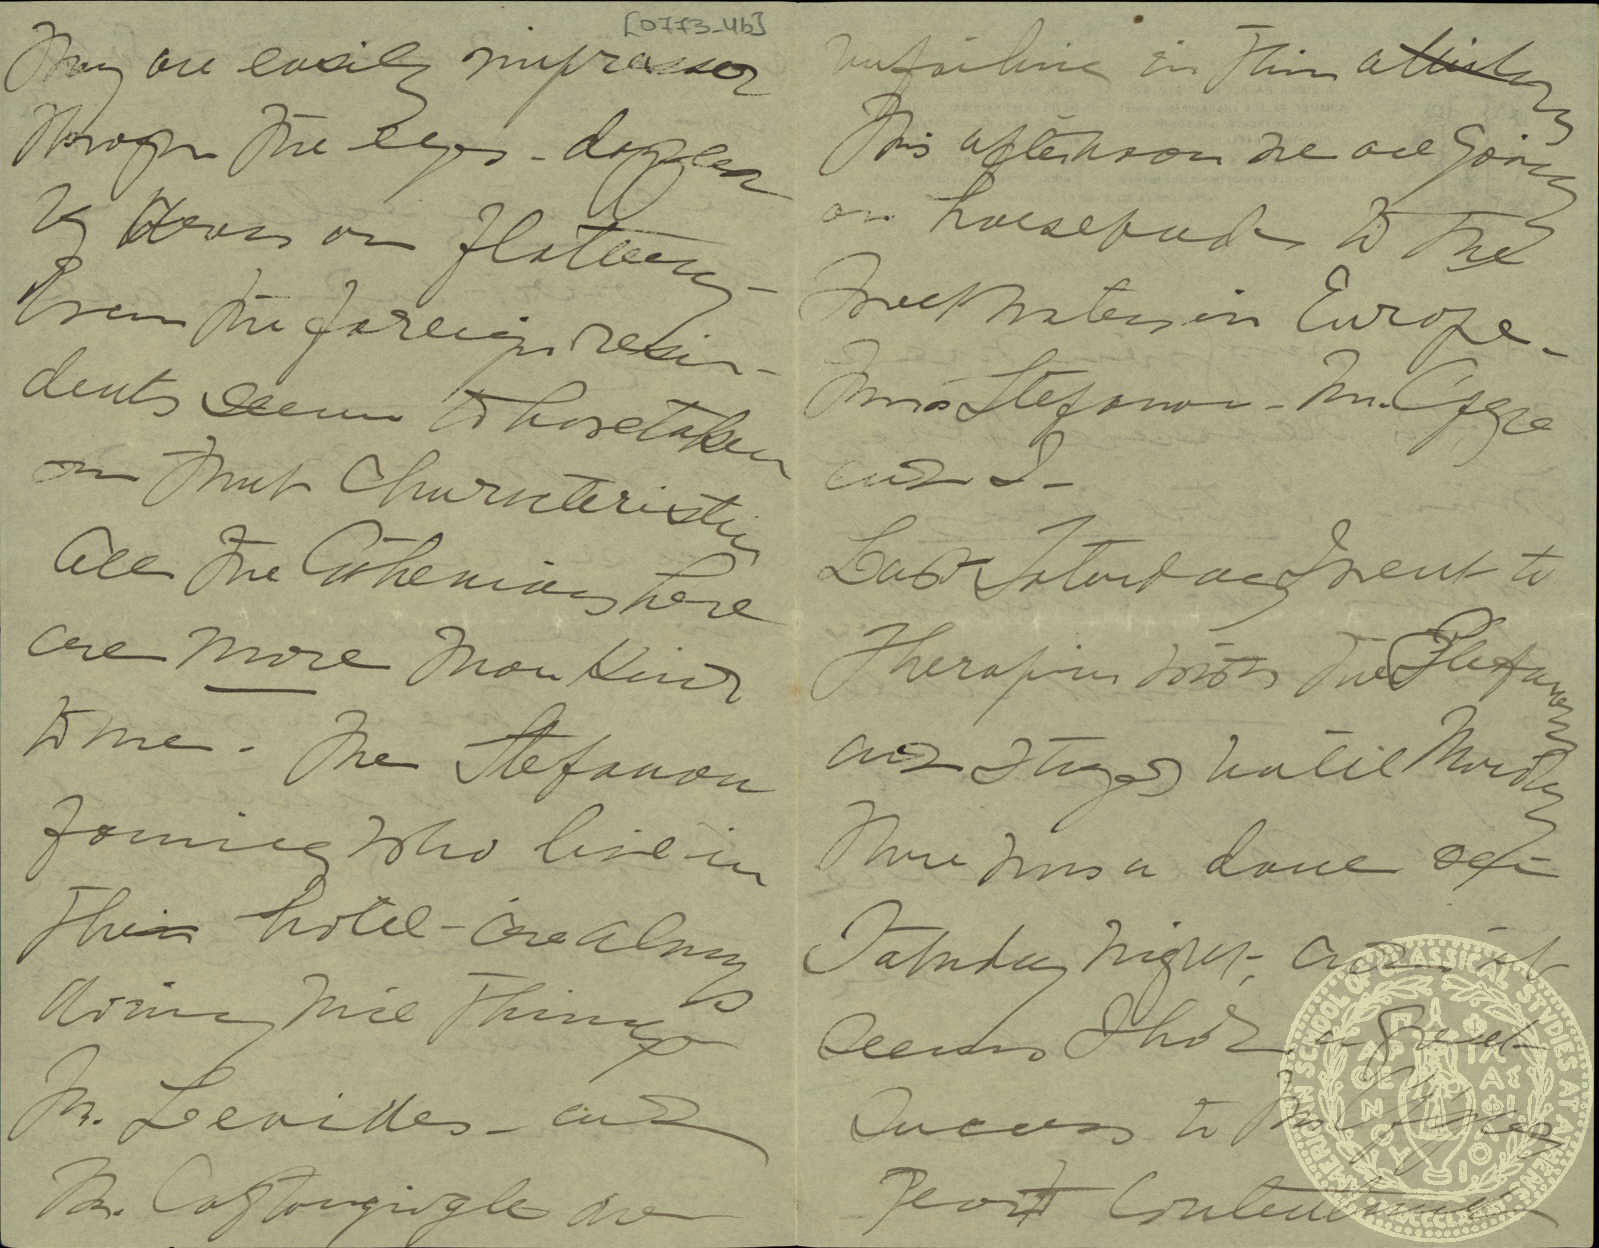 [0773_4b]
They are easily impressed
through the eyes - dazzled
by dress or flattery -
Even the foreign resi-
dents seem to have taken
on that characteristic
All the Athenians here
are more than kind
to me. The Stefanou
family who live in
this hotel - are always
doing nice things
Mr. Leevides - and
Mr. are
unfailing in their
This afternoon we are going
on horseback to the
Sweet Waters in Europe -
Miss Stefanou - Mr.
and I -
Last Saturday I went to
Therapia with the Stefanou
and stayed until Monday
There was a dance
Saturday night, and it
seems I had a great
success to
Peoit
AMERICAN SCHOOL OF CLASSICAL STUDIES AT ATHENS
ΠΑΡΘΕΝΟΥ ΦΙΛΑΣ ΦΙΛΟΙ